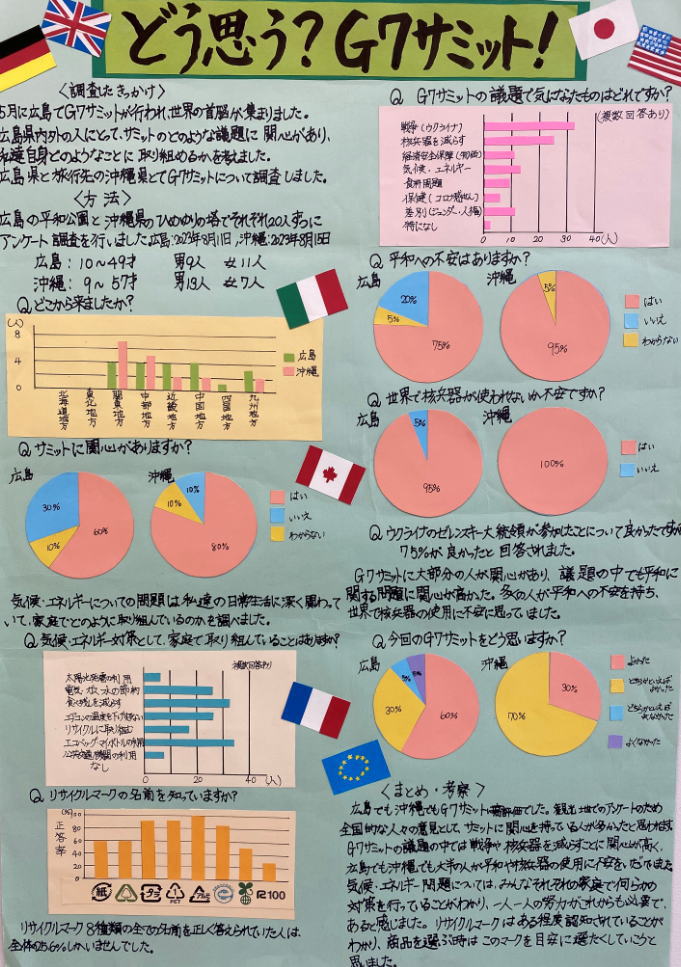 どう思う？G7サミット！
〈調査したきっかけ〉
5月に広島でG7サミットが行われ、世界の首脳が集まりました。
広島県内外の人にとって、サミットのどのような議題に関心があり、
私達自身どのようなことに取り組めるかを考えました。
広島県と旅行先の沖縄県とでG7サミットについて調査しました。
〈方法〉
広島の平和公園と沖縄県のひめゆりの塔でそれぞれ20人ずつに
アンケート調査を行いました 広島:2023年8月11日, 沖縄:2023年8月15日
広島: 10〜49才 男9人 女11人
沖縄: 9〜57才 男13人 女7人
Q どこから来ましたか?
(人)
8
4
0
広島
沖縄
北海道地方
東北地方
関東地方
中部地方
近畿地方
中国地方
四国地方
九州地方
Q サミットに関心がありますか?
広島
30%
10%
60%
沖縄
10%
10%
80%
はい
いいえ
わからない
気候・エネルギーについての問題は私達の日常生活に深く関わって
いて、家庭でどのように取り組んでいるのかを調べました。
Q 気候・エネルギー対策として、家庭で取り組んでいることはありますか?
複数回答あり
太陽光発電の利用
電気、ガス、水の節約
食べ残しを減らす
エアコンの温度を下げすぎない
リサイクルに取り組む
エコバッグ・マイボトルの利用
公共交通機関の利用
なし
0
20
40(人)
Q リサイクルマークの名前を知っていますか?
(%)
100
80
60
40
20
0
正答率
紙
PET
R100
リサイクルマーク8種類の全ての名前を正しく答えられていた人は、
全体の5.6%しかいませんでした。
Q G7サミットの議題で気になったものはどれですか?
(複数回答あり)
戦争(ウクライナ)
核兵器を減らす
経済安全保障(物価)
気候・エネルギー
食料問題
保健(コロナ感染など)
差別(ジェンダー・人種)
特になし
0
10
20
30
40(人)
Q 平和への不安はありますか?
広島
20%
5%
75%
沖縄
5%
95%
はい
いいえ
わからない
Q 世界で核兵器が使われないか不安ですか?
広島
5%
95%
沖縄
100%
はい
いいえ
Q ウクライナのゼレンスキー大統領が参加したことについて良かったですか
75%が良かったと回答されました。
G7サミットに大部分の人が関心があり、議題の中でも平和に
関する問題に関心が高かった。多くの人が平和への不安を持ち、
世界で核兵器の使用に不安に思っていました。
Q 今回のG7サミットをどう思いますか?
広島
5%
5%
30%
60%
沖縄
30%
70%
よかった
どちらかといえばよかった
どちらかといえばよくなかった
よくなかった
〈まとめ・考察〉
広島でも沖縄でもG7サミットは高評価でした。観光地でのアンケートのため
全国的な人々の意見として、サミットに関心を持っている人が多かったと思われます。
G7サミットの議題の中では戦争や核兵器を減らすことに関心が高く、
広島でも沖縄でも大半の人が平和や核兵器の使用に不安をいだいてました。
気候・エネルギー問題については、みんなそれぞれの家庭で何らかの
対策を行っていることがわかり、一人一人の努力がこれからも必要で、
あると感じました。リサイクルマークはある程度認知されていることが
わかり、商品を選ぶ時はこのマークを目安に選たくしていこうと
思いました。